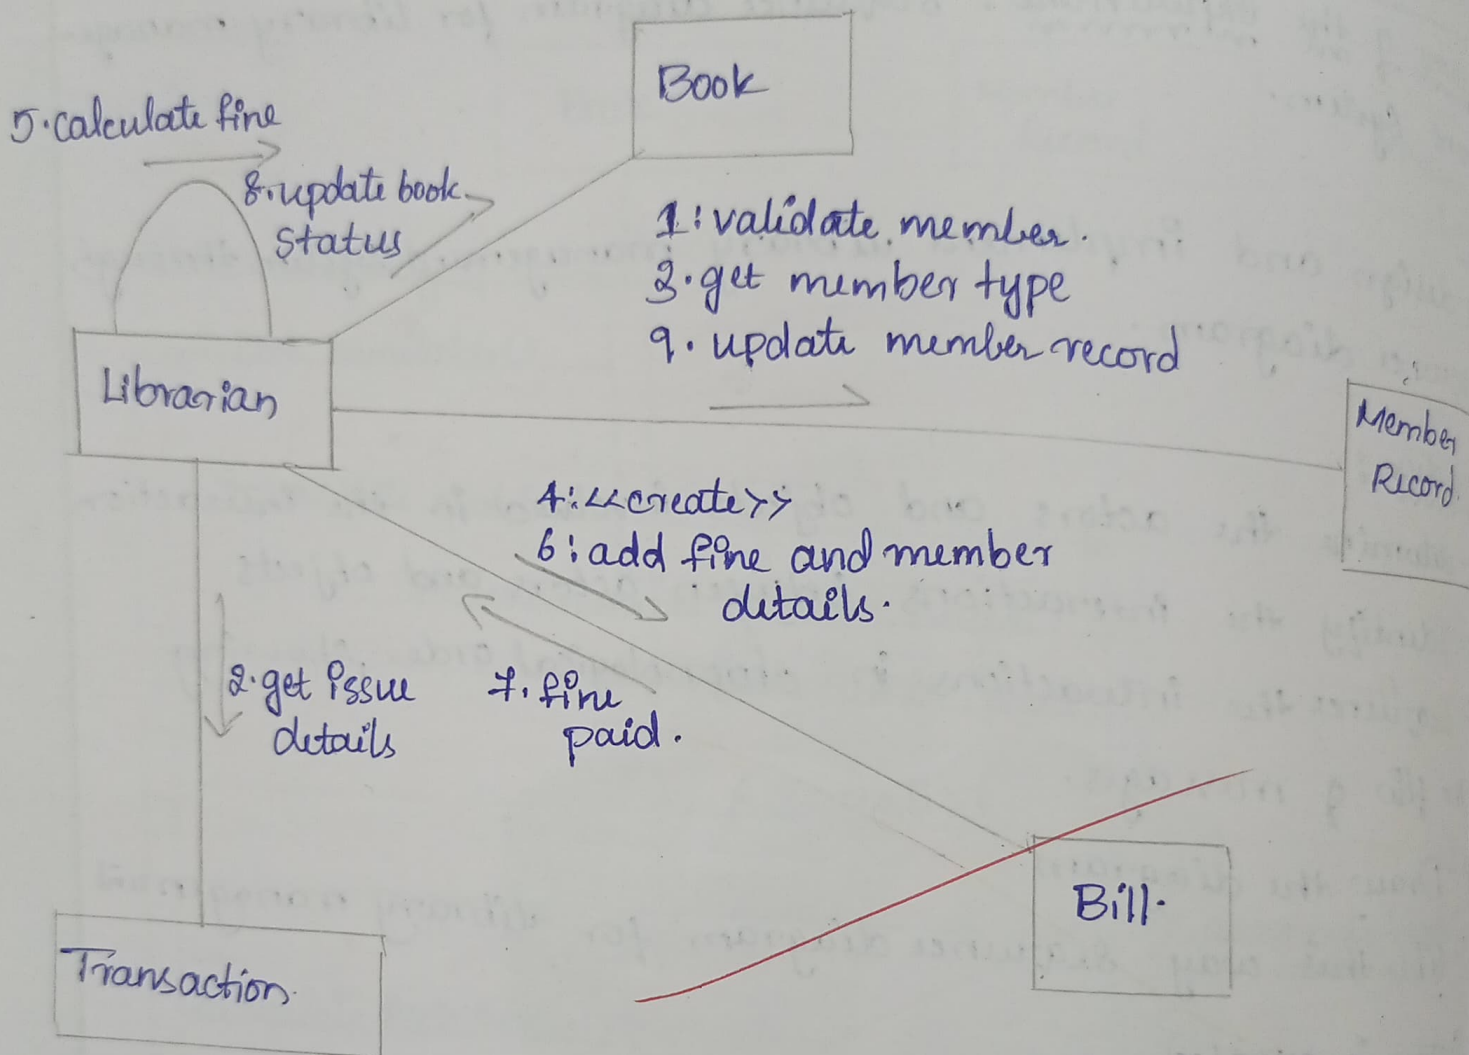 Book
5.calculate fine
8.update book
status
1:validate member.
3.get member type
9.update member record
Librarian
Member
Record
4:<<create>>
6:add fine and member
details.
2.get issue
details
7.fine
paid.
Bill.
Transaction.